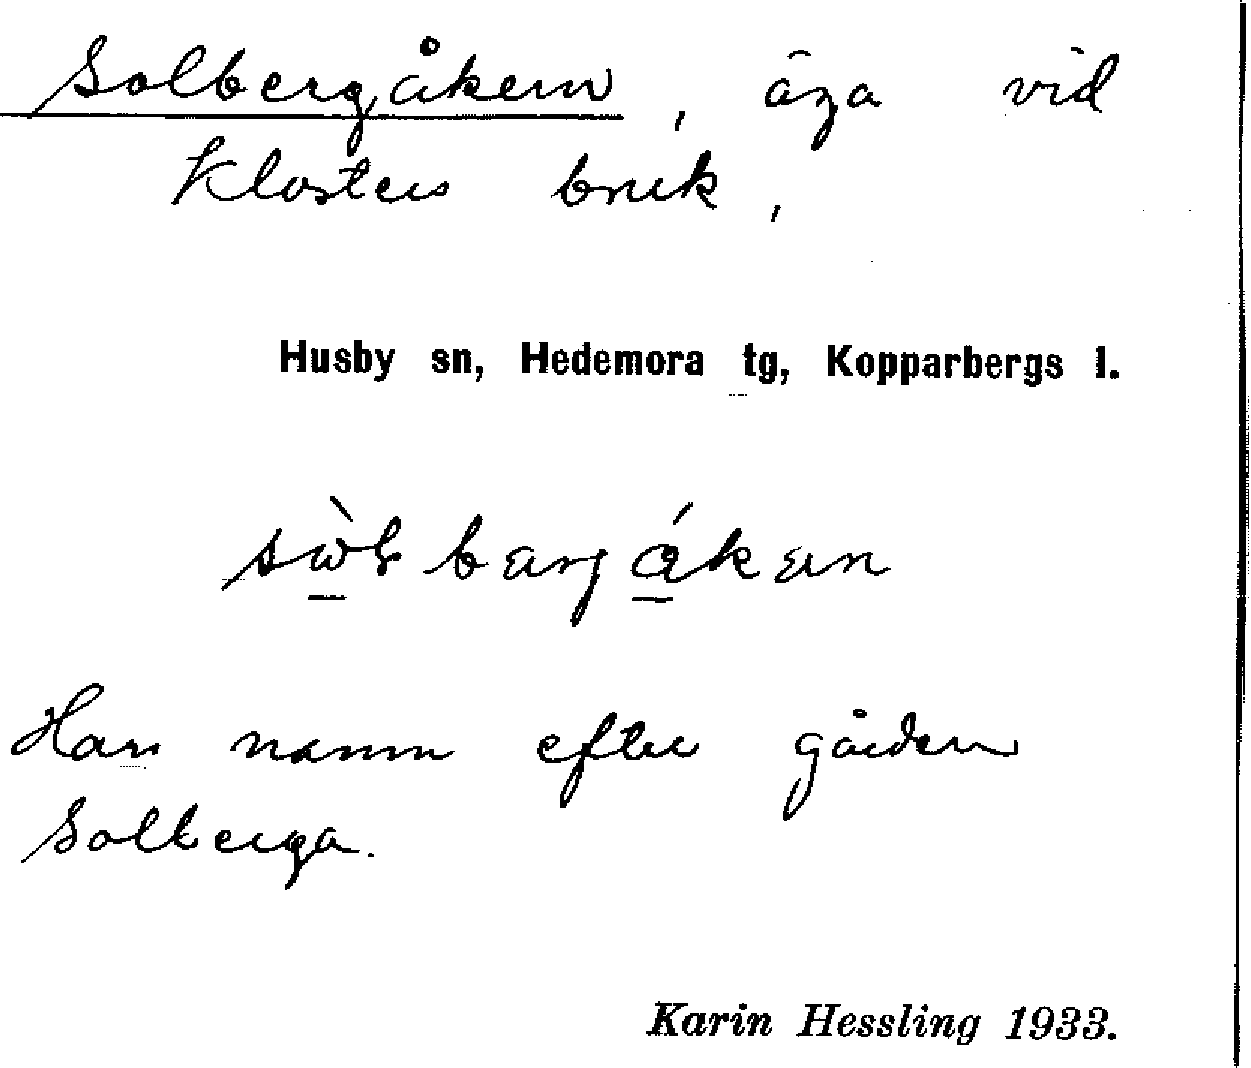 Solbergåkern, äga vid
Klosters bruk,
Husby sn, Hedemora tg, Kopparbergs l.
Har namn efter gården
Solberga.
Karin Hessling 1933.